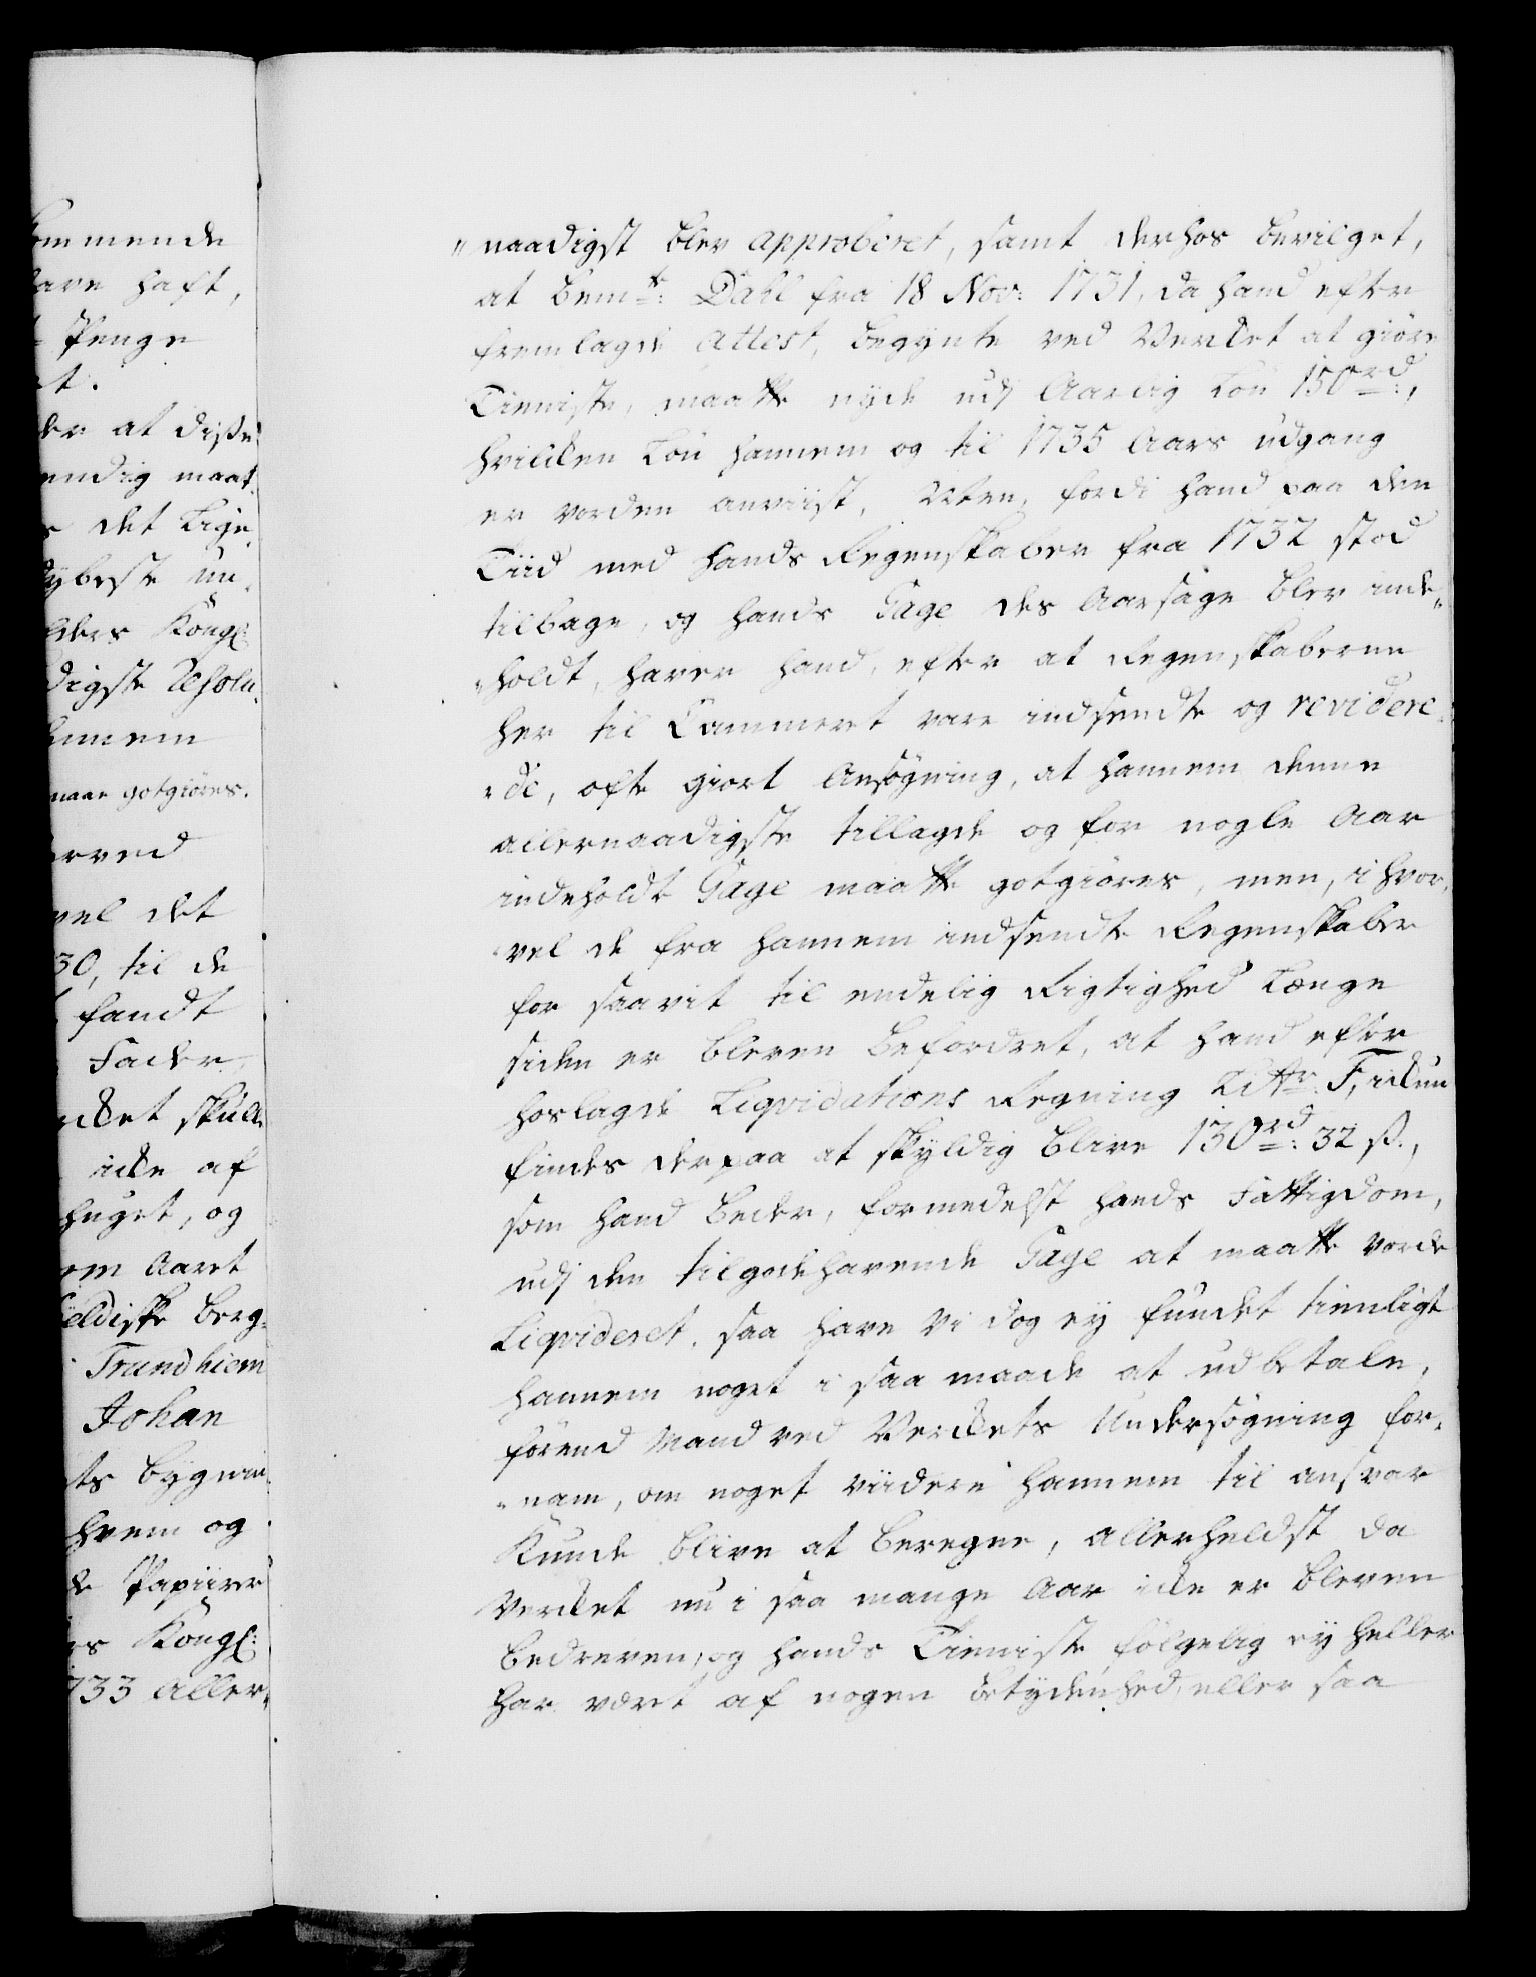 ommende
are haft,
Penge
et.
der at disse
endig maat
det Lige
dybeste un-
lders Kongl:
digste Resolu-
hannem
naar gotgiøres.
erved
vel det
30, til de
fandt
Fader
rcket skulle
icke af
huget, og
em Aaret
eldiske Berg-
Trundhiem
Johan
ts bygnin-
hvem og
de Papiirer
rs Kongl:
1733 Aller-
"naadigst blev approberet, samt derhos bevilget,
at bemte: Dahl fra 18 Nov: 1731, da hand efter
fremlagde Attest, begynte ved Vercket at giøre
Tieniste, maatte nyde udj Aarlig Løn 150 rd:,
hvilcken Løn hannem og til 1735 Aars udgang
er vorden anviist, Men, fordi hand paa den
Tiid med hands Regenskaber fra 1732 stod
tilbage, og hands Gage des Aarsage blev inde-
"holdt, haver hand, efter at Regenskaberne
her til Cammeret vare indsendte og revidere-
"de, ofte giort Ansøgning, at hannem denne
allernaadigste tillagde og for nogle Aar
indeholdt Gage maatte gotgiøres, men, i hvor-
vel de fra hannem indsendte Regenskaber
for saavit til endelig Rigtighed længe
siden er bleven befordret, at hand efter
hoslagde Liqvidations Regning Littr: F, ickun
findes derpaa at skyldig blive 130 rd: 32 s.,
som hand beder, formedelst hands Fattigdom,
udj den tilgodehavende Gage at maatte vorde
Liqvideret. saa have Vi dog ey fundet tienligt
hannem noget i saa maade at udbetale,
førend Mand ved Verckets Undersøgning for-
"nam, om noget viidere hannem til ansvar
Kunde blive at beregne, allerheldst da
Vercket nu i saa mange Aar icke er bleven
bedreven, og hands Tieniste følgelig ey heller
har vært af nogen betydenhed, eller saa